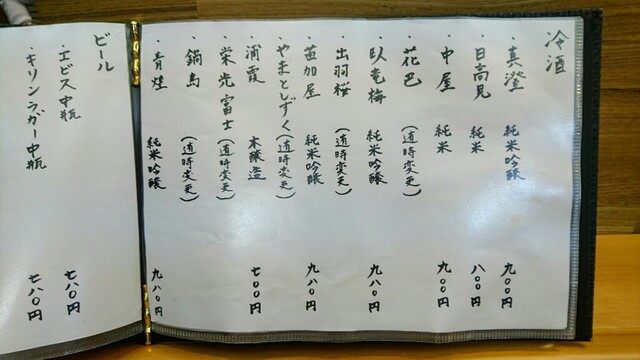 冷酒
・真澄 純米吟醸 九〇〇円
・日高見 純米 八〇〇円
・中屋 純米 九〇〇円
・花巴 (適時変更)
・臥竜梅 純米吟醸 九八〇円
・出羽桜 (適時変更)
・苗加屋 純米吟醸 九八〇円
・やまとしずく (適時変更)
・浦霞 本醸造 七〇〇円
・栄光富士 (適時変更)
・鍋島 (適時変更)
・青煌 純米吟醸 九八〇円
ビール
・エビス中瓶 七八〇円
・キリンラガー中瓶 七八〇円